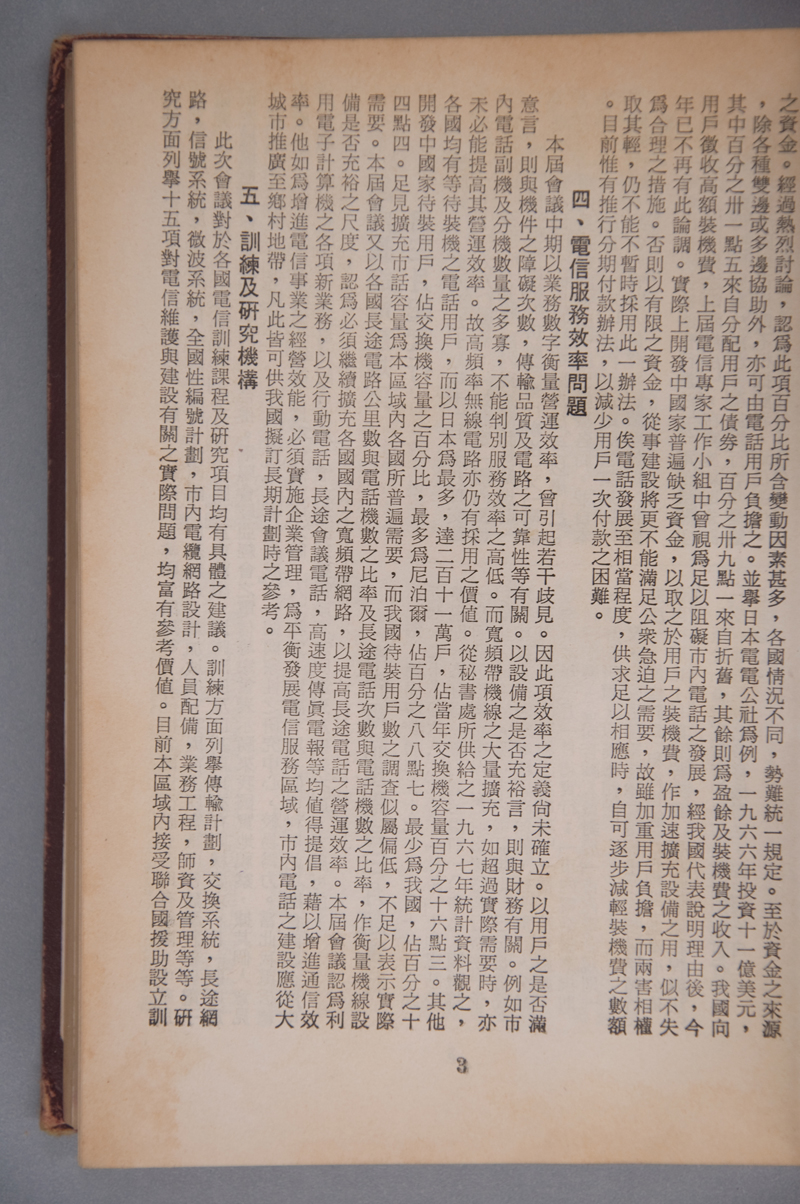 之資金。經過熱烈討論，認爲此項百分比所含變動因素甚多，各國情況不同，勢難統一規定。至於資金之來源
，除各種雙邊或多邊協助外，亦可由電話用戶負擔之。並舉日本電電公社爲例，一九六六年投資十一億美元，
其中百分之卅一點五來自分配用戶之債券，百分之卅九點一來自折舊，其餘則爲盈餘及裝機費之收入。我國向
用戶徵收高額裝機費，上屆電信專家工作小組中曾視爲足以阻礙市內電話之發展，經我國代表說明理由後，今
年已不再有此論調。實際上開發中國家普遍缺乏資金，以取之於用戶之裝機費，作加速擴充設備之用，似不失
爲合理之措施。否則以有限之資金，從事建設將更不能滿足公衆急迫之需要，故雖加重用戶負擔，而兩害相權
取其輕，仍不能不暫時採用此一辦法。俟電話發展至相當程度，供求足以相應時，自可逐步減輕裝機費之數額
。目前惟有推行分期付款辦法，以減少用戶一次付款之困難。
四、電信服務效率問題
本屆會議中期以業務數字衡量營運效率，曾引起若干歧見。因此項效率之定義尙未確立。以用戶之是否滿
意言，則與機件之障礙次數，傳輸品質及電路之可靠性等有關。以設備之是否充裕言，則與財務有關。例如市
內電話副機及分機數量之多寡，不能判別服務效率之高低。而寬頻帶機線之大量擴充，如超過實際需要時，亦
未必能提高其營運效率。故高頻率無線電路亦仍有採用之價値。從秘書處所供給之一九六七年統計資料觀之，
各國均有等待裝機之電話用戶，而以日本爲最多，達二百十一萬戶，佔當年交換機容量百分之十六點三。其他
開發中國家待裝用戶，佔交換機容量之百分比，最多爲尼泊爾，佔百分之八八點七。最少爲我國，佔百分之十
四點四。足見擴充市話容量爲本區域內各國所普遍需要，而我國待裝用戶數之調查似屬偏低，不足以表示實際
需要。本屆會議又以各國長途電路公里數與電話機數之比率及長途電話次數與電話機數之比率，作衡量機線設
備是否充裕之尺度，認爲必須繼續擴充各國國內之寬頻帶網路，以提高長途電話之營運效率。本屆會議認爲利
用電子計算機之各項新業務，以及行動電話，長途會議電話，高速度傳眞電報等均值得提倡，藉以增進通信效
率。他如爲增進電信事業之經營效能，必須實施企業管理，爲平衡發展電信服務區域，市內電話之建設應從大
城市推廣至鄉村地帶，凡此皆可供我國擬訂長期計劃時之參考。
五、訓練及硏究機構
此次會議對於各國電信訓練課程及硏究項目均有具體之建議。訓練方面列擧傳輸計劃，交換系統，長途網
路，信號系統，微波系統，全國性編號計劃，市內電纜網路設計，人員配備，業務工程，師資及管理等等。硏
究方面列擧十五項對電信維護與建設有關之實際問題，均富有參考價値。目前本區域內接受聯合國援助設立訓
3